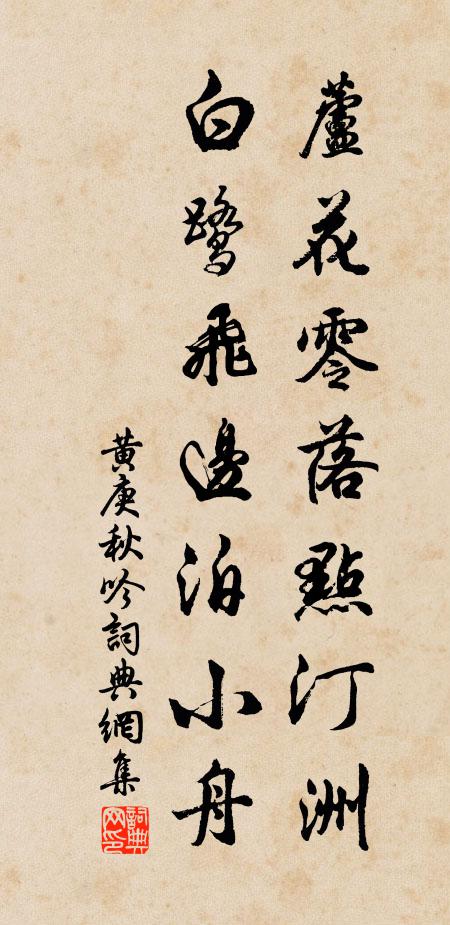 蘆花零落點汀洲
白鷺飛邊泊小舟
黄庚秋吟詞典網集
詞典网印